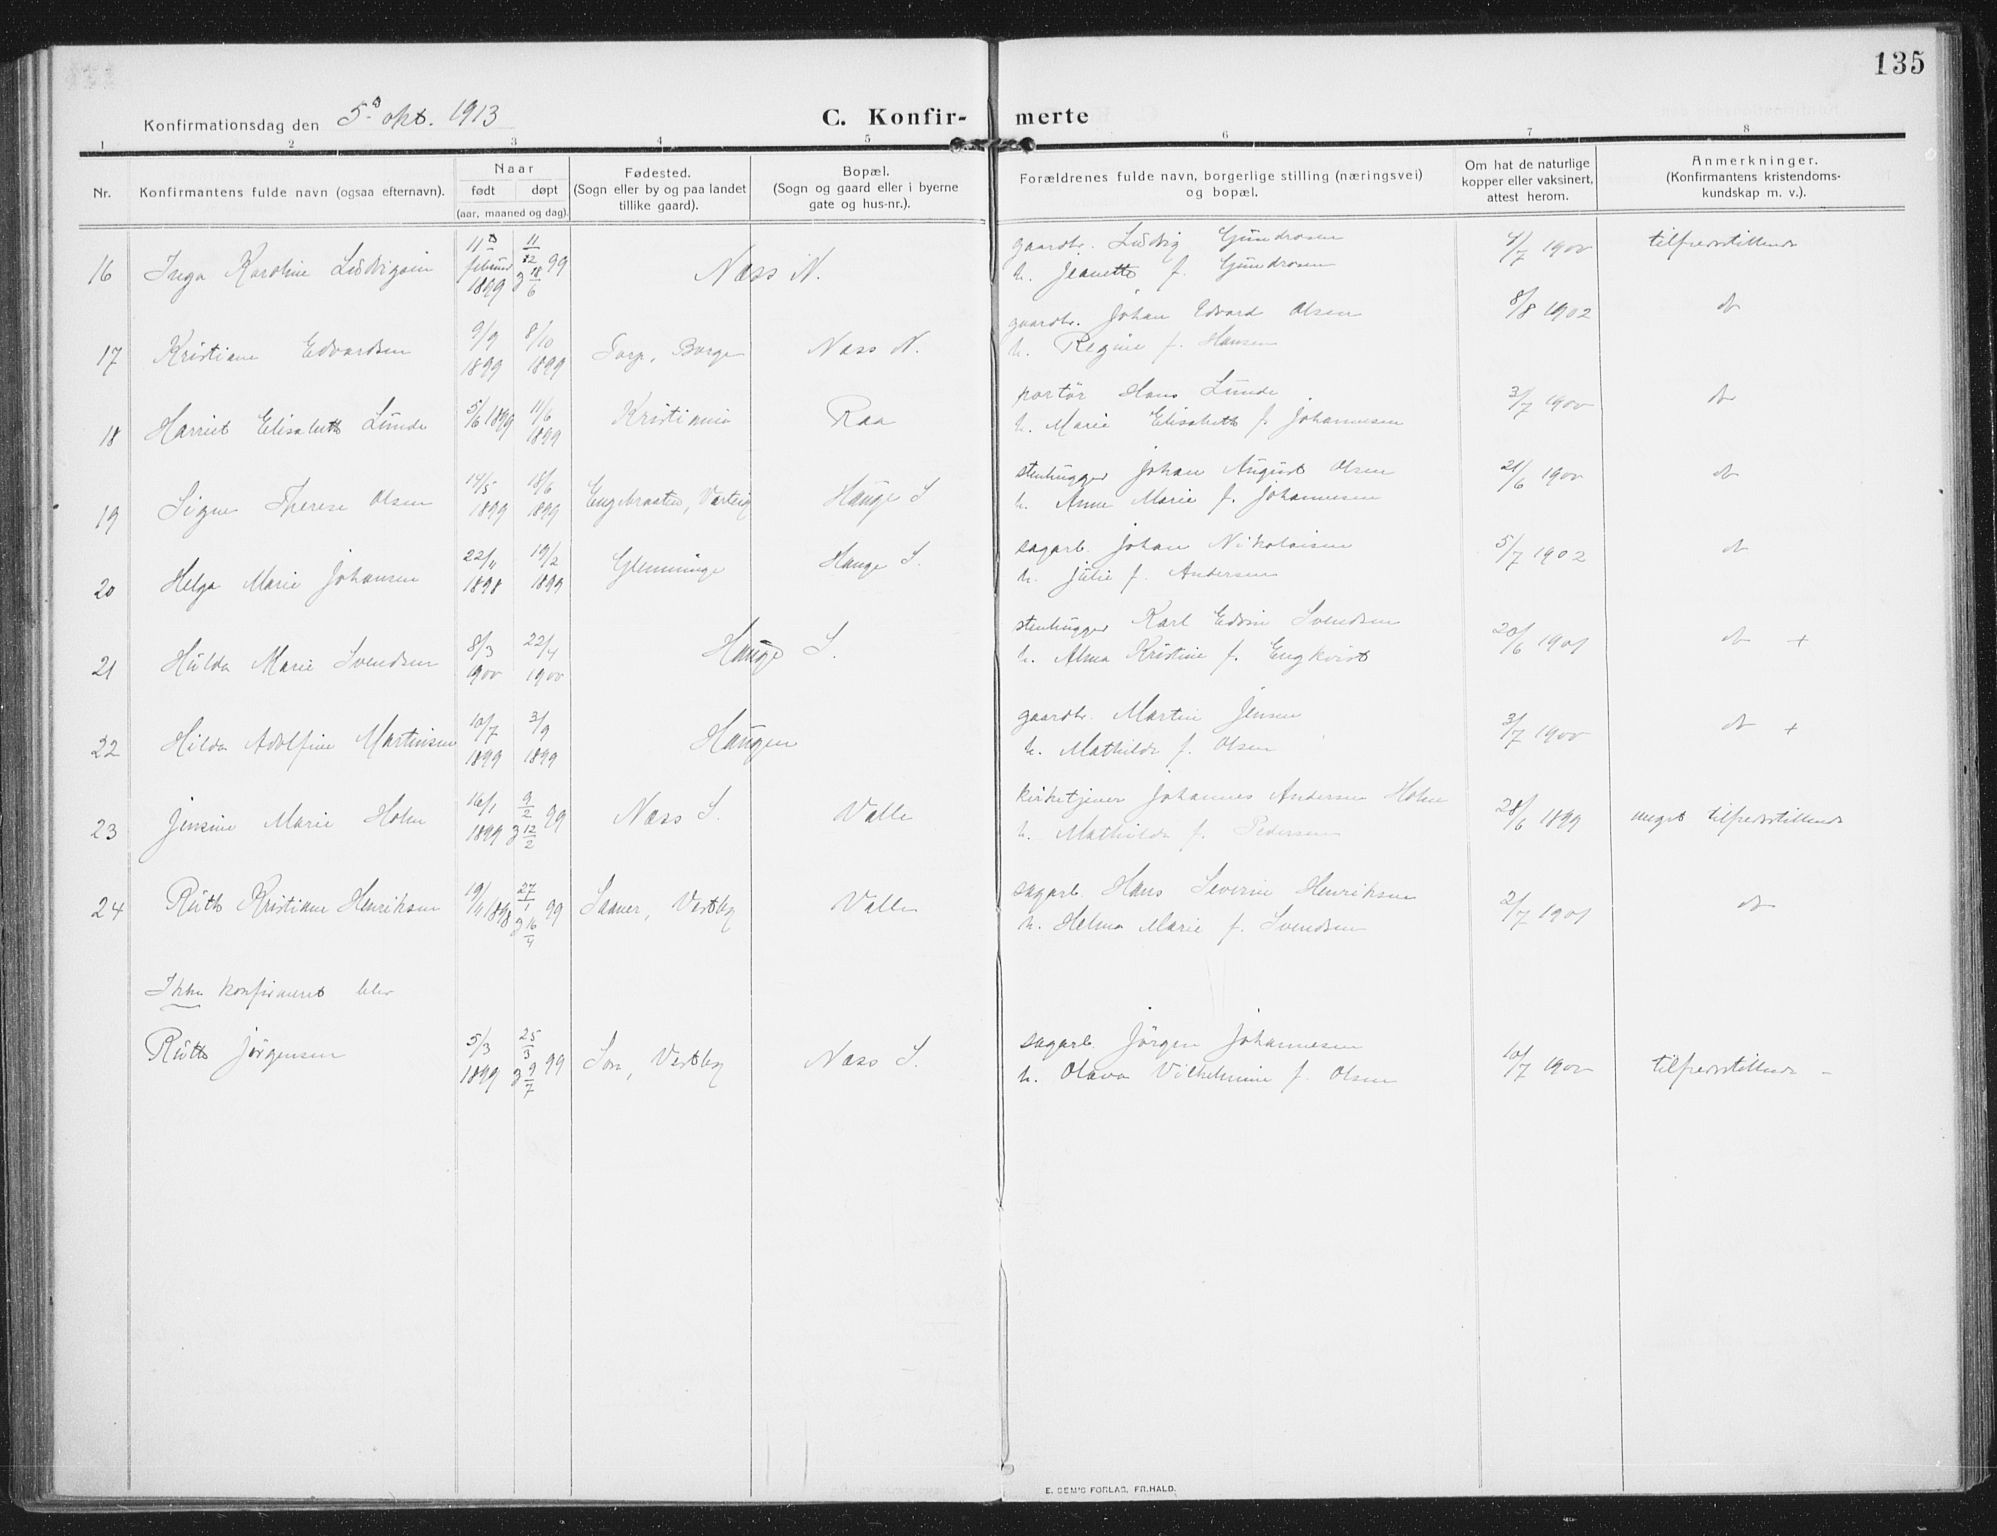 135
Konfirmationsdag den 5. okt. 1913
C. Konfir- merte
1 2 3 4 5 6 7 8
Nr. Konfirmantens fulde navn (ogsaa efternavn). Naar født døpt (aar, maaned og dag). Fødested. (Sogn eller by og paa landet tillike gaard). Bopæl. (Sogn og gaard eller i byerne gate og hus-nr.). Forældrenes fulde navn, borgerlige stilling (næringsvei) og bopæl. Om hat de naturlige kopper eller vaksinert, attest herom. Anmerkninger. (Konfirmantens kristendoms- kundskap m. v.).
16 Inga Karoline Ludvigsen 11 februar 1899 11/2 99 18/6 Næss N. gaardbr. Ludvig Gundrosen 4/7 1900 tilfredsstillende
h. Jeanette f. Gundrosen
17 Kristiane Edvardsen 9/9 1899 8/10 1899 Torp, Borge Næss N. gaardbr. Johan Edvard Olsen 8/8 1902 do
h. Regine f. Hansen
18 Harriet Elisabeth Lunde 5/6 1899 11/6 1899 Kristiania Raa portør Hans Lunde 3/7 1900 do
h. Marie Elisabeth f. Johannesen
19 Signe Therese Olsen 14/5 1899 18/6 1899 Engebraaten, Varteig Hauge S. stenhugger Johan August Olsen 21/6 1900 do
h. Anne Marie f. Johannesen
20 Helga Marie Johansen 22/11 1898 19/2 1899 Glemminge Hauge S. sagarb. Johan Nikolaisen 5/7 1902 do
h. Julie f. Andersen
21 Hulda Marie Svendsen 8/3 1900 22/4 1900 Hauge S. stenhugger Karl Edvin Svendsen 20/6 1901 do +
h. Alma Kristine f. Engkvist
22 Hilda Adolfine Martinsen 10/7 1899 3/9 1899 Haugen gaardbr. Martin Jensen 3/7 1900 do +
h. Mathilde f. Olsen
23 Jensine Marie Holm 16/1 1899 9/2 99 12/2 Næss S. Valle kirketjener Johannes Andersen Holm 28/6 1899 meget tilfredsstillende
h. Mathilde f. Pedersen
24 Ruth Kristiane Henriksen 19/11 1898 27/1 99 16/4 Saaner, Vestby Valle sagarb. Hans Severin Henriksen 2/7 1901 do
h. Helma Marie f. Svendsen
Ikke konfirmeret blev
Ruth Jørgensen 5/3 1899 25/3 99 9/7 Son, Vestby Næss S. sagarb. Jørgen Johannesen 10/7 1900 tilfredsstillende -
h. Olava Vilhelmine f. Olsen
E. SEM'S FORLAG, FR.HALD.